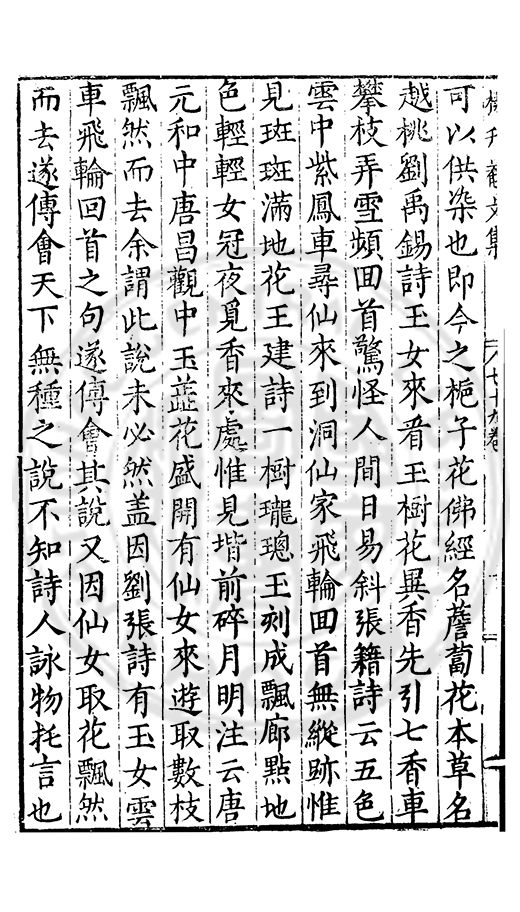 楊升菴文集
七十九卷
可以供染也即今之梔子花佛經名薝蔔花本草名
越桃劉禹錫詩玉女來看玉樹花異香先引七香車
攀枝弄雪頻回首驚怪人間日易斜張籍詩云五色
雲中紫鳳車尋仙來到洞仙家飛輪回首無縱跡惟
見斑斑滿地花王建詩一樹瓏璁玉刻成飄廊點地
色輕輕女冠夜覓香來處惟見堦前碎月明注云唐
元和中唐昌觀中玉蕋花盛開有仙女來遊取數枝
飄然而去余謂此說未必然盖因劉張詩有玉女雲
車飛輪回首之句遂傅會其說又因仙女取花飄然
而去遂傅會天下無種之說不知詩人詠物托言也